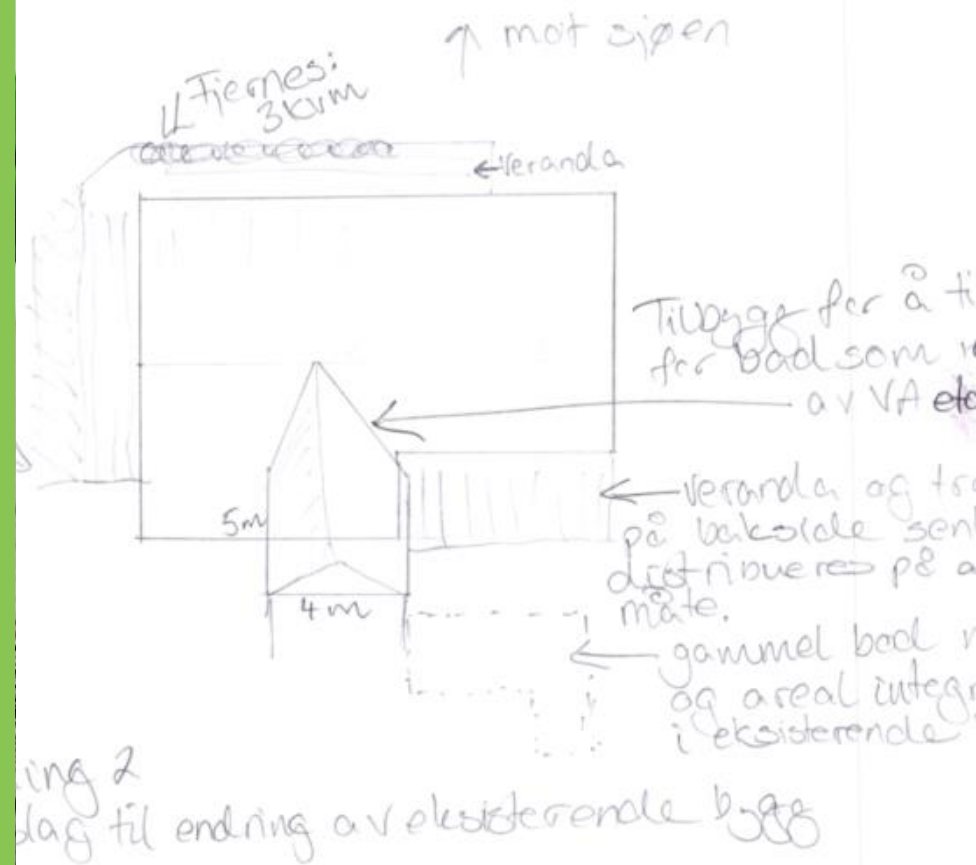 ↑ mot sjøen
Fjernes:
3kvm
←veranda
Tilbygg for å ti
for bad som
av VA etc
veranda og tra
på bakside sen
distribueres på a
måte.
5m
4m
gammel bod
og areal integr
i eksisterende
ing 2
slag til endring av eksisterende bygg